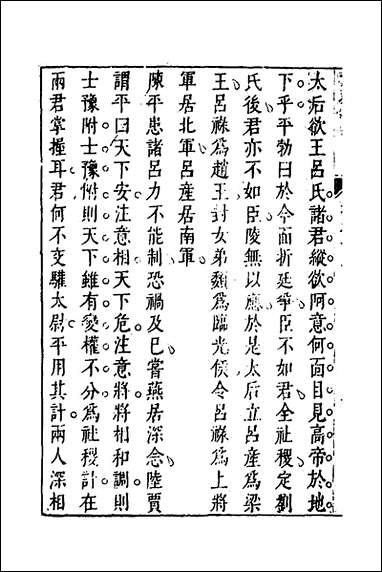 太后欲王呂氏諸君縱欲阿意何面目見高帝於地
下乎平勃曰於今面折廷爭臣不如君全社稷定劉
氏後君亦不如臣陵無以應於是太后立呂產為梁
王呂祿為趙王封女弟嬃為臨光侯令呂祿為上將
軍居北軍呂產居南軍
陳平患諸呂力不能制恐禍及已嘗燕居深念陸賈
謂平曰天下安注意相天下危注意將將相和調則
士豫附士豫附則天下雖有變權不分為社稷計在
兩君掌握耳君何不交驩太尉平用其計兩人深相